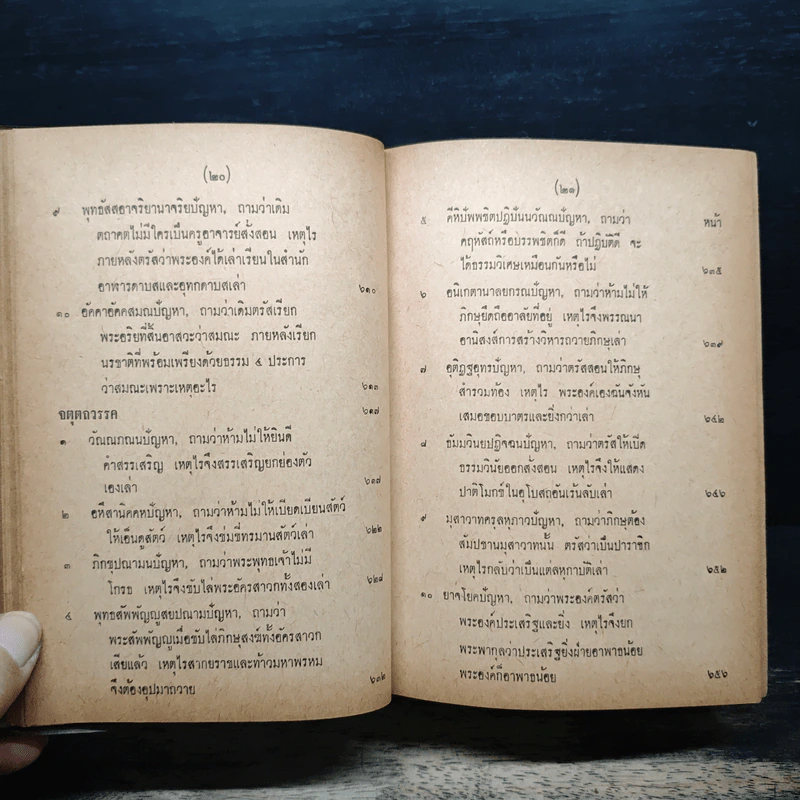 (๒๐)
๙ พุทธัสสอาจริยานาจริยปัญหา, ถามว่าเดิม
ตถาคตไม่มีใครเป็นครูอาจารย์สั่งสอน เหตุไร
ภายหลังตรัสว่าพระองค์ได้เล่าเรียนในสำนัก
อาฬารดาบสและอุทกดาบสเล่า ๖๑๐
๑๐ อัคคาอัคคสมณปัญหา, ถามว่าเดิมตรัสเรียก
พระอริยที่สิ้นอาสวะว่าสมณะ ภายหลังเรียก
นรชาติที่พร้อมเพรียงด้วยธรรม ๔ ประการ
ว่าสมณะเพราะเหตุอะไร ๖๑๓
จตุตถวรรค ๖๑๗
๑ วัณณภณนปัญหา, ถามว่าห้ามไม่ให้ยินดี
คำสรรเสริญ เหตุไรจึงสรรเสริญยกย่องตัว
เองเล่า ๖๑๗
๒ อหึสานิคคหปัญหา, ถามว่าห้ามไม่ให้เบียดเบียนสัตว์
ให้เอ็นดูสัตว์ เหตุไรจึงข่มขี่ทรมานสัตว์เล่า ๖๒๒
๓ ภิกขุปณามนปัญหา, ถามว่าพระพุทธเจ้าไม่มี
โกรธ เหตุไรจึงขับไล่พระอัครสาวกทั้งสองเล่า ๖๒๘
๔ พุทธสัพพัญญูสยปณามปัญหา, ถามว่า
พระสัพพัญญูเมื่อขับไล่ภิกษุสงฆ์ทั้งอัครสาวก
เสียแล้ว เหตุไรสากยราชและท้าวมหาพรหม
จึงต้องอุปมาถวาย ๖๓๒
(๒๑)
หน้า
๕ คีหิปัพพชิตปฏิปันนวัณณปัญหา, ถามว่า
คฤหัสถ์หรือบรรพชิตก็ดี ถ้าปฏิบัติดี จะ
ได้ธรรมวิเศษเหมือนกันหรือไม่ ๖๓๕
๖ อนิเกตานาลยกรณปัญหา, ถามว่าห้ามไม่ให้
ภิกษุยึดถืออาลัยที่อยู่ เหตุไรจึงพรรณนา
อานิสงส์การสร้างวิหารถวายภิกษุเล่า ๖๓๙
๗ อุติฏฐอุทรปัญหา, ถามว่าตรัสสอนให้ภิกษุ
สำรวมท้อง เหตุไร พระองค์เองฉันจังหัน
เสมอขอบบาตรและยิ่งกว่าเล่า ๖๔๒
๘ ธัมมวินยปฏิจฉนปัญหา, ถามว่าตรัสให้เปิด
ธรรมวินัยออกสั่งสอน เหตุไรจึงให้แสดง
ปาติโมกข์ในอุโบสถอันเร้นลับเล่า ๖๔๖
๙ มุสาวาทครุลหุภาวปัญหา, ถามว่าภิกษุต้อง
สัมปชานมุสาวาทนั้น ตรัสว่าเป็นปาราชิก
เหตุไรกลับว่าเป็นแต่ลหุกาบัติเล่า ๖๕๒
๑๐ ยาจโยคปัญหา, ถามว่าพระองค์ตรัสว่า
พระองค์ประเสริฐและยิ่ง เหตุไรจึงยก
พระพากุลว่าประเสริฐยิ่งฝ่ายอาพาธน้อย
พระองค์ก็อาพาธน้อย ๖๕๖